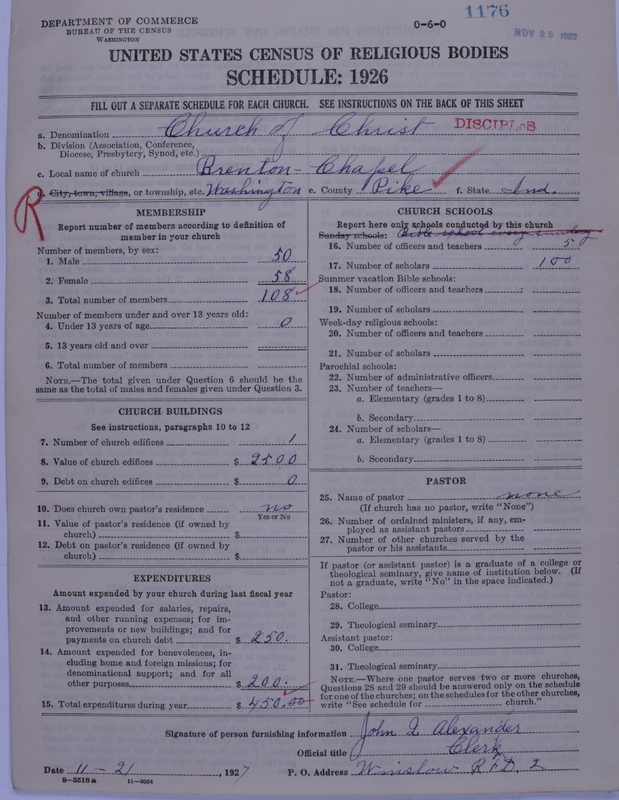 1176
DEPARTMENT OF COMMERCE
BUREAU OF THE CENSUS
WASHINGTON
0-6-0
NOV 23 1927
UNITED STATES CENSUS OF RELIGIOUS BODIES
SCHEDULE: 1926
FILL OUT A SEPARATE SCHEDULE FOR EACH CHURCH. SEE INSTRUCTIONS ON THE BACK OF THIS SHEET
a. Denomination Church of Christ DISCIPLES
b. Division (Association, Conference,
Diocese, Presbytery, Synod, etc.)
c. Local name of church Brenton Chapel
d. City, town, village, or township, etc. Washington e. County Pike f. State Ind.
R
MEMBERSHIP
Report number of members according to definition of
member in your church
Number of members, by sex:
1. Male 50
2. Female 58
3. Total number of members 108
Number of members under and over 13 years old:
4. Under 13 years of age 0
5. 13 years old and over
6. Total number of members
NOTE.—The total given under Question 6 should be the
same as the total of males and females given under Question 3.
CHURCH BUILDINGS
See instructions, paragraphs 10 to 12
7. Number of church edifices 1
8. Value of church edifices $ 2500
9. Debt on church edifices $ 0
10. Does church own pastor's residence no
Yes or No
11. Value of pastor's residence (if owned by
church) $
12. Debt on pastor's residence (if owned by
church) $
EXPENDITURES
Amount expended by your church during last fiscal year
13. Amount expended for salaries, repairs,
and other running expenses; for im-
provements or new buildings; and for
payments on church debt $ 250.
14. Amount expended for benevolences, in-
cluding home and foreign missions; for
denominational support; and for all
other purposes $ 200.
15. Total expenditures during year $ 450.00
CHURCH SCHOOLS
Report here only schools conducted by this church
Sunday schools: Bible school every sunday
16. Number of officers and teachers 5
17. Number of scholars 100
Summer vacation Bible schools:
18. Number of officers and teachers
19. Number of scholars
Week-day religious schools:
20. Number of officers and teachers
21. Number of scholars
Parochial schools:
22. Number of administrative officers
23. Number of teachers—
a. Elementary (grades 1 to 8)
b. Secondary
24. Number of scholars—
a. Elementary (grades 1 to 8)
b. Secondary
PASTOR
25. Name of pastor none
(If church has no pastor, write "None")
26. Number of ordained ministers, if any, em-
ployed as assistant pastors
27. Number of other churches served by the
pastor or his assistants
If pastor (or assistant pastor) is a graduate of a college or
theological seminary, give name of institution below. (If
not a graduate, write "No" in the space indicated.)
Pastor:
28. College
29. Theological seminary
Assistant pastor:
30. College
31. Theological seminary
NOTE.—Where one pastor serves two or more churches,
Questions 28 and 29 should be answered only on the schedule
for one of the churches; on the schedules for the other churches,
write "See schedule for church."
Signature of person furnishing information John Q Alexander
Official title Clerk
Date 11-21, 1927 P. O. Address Winslow RFD. 2
8-5518a 11-9034